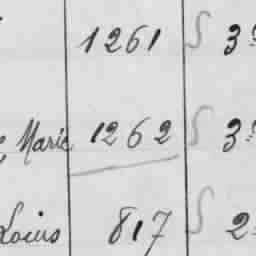 1261 3
Marie 1262 3
Louis 817 2